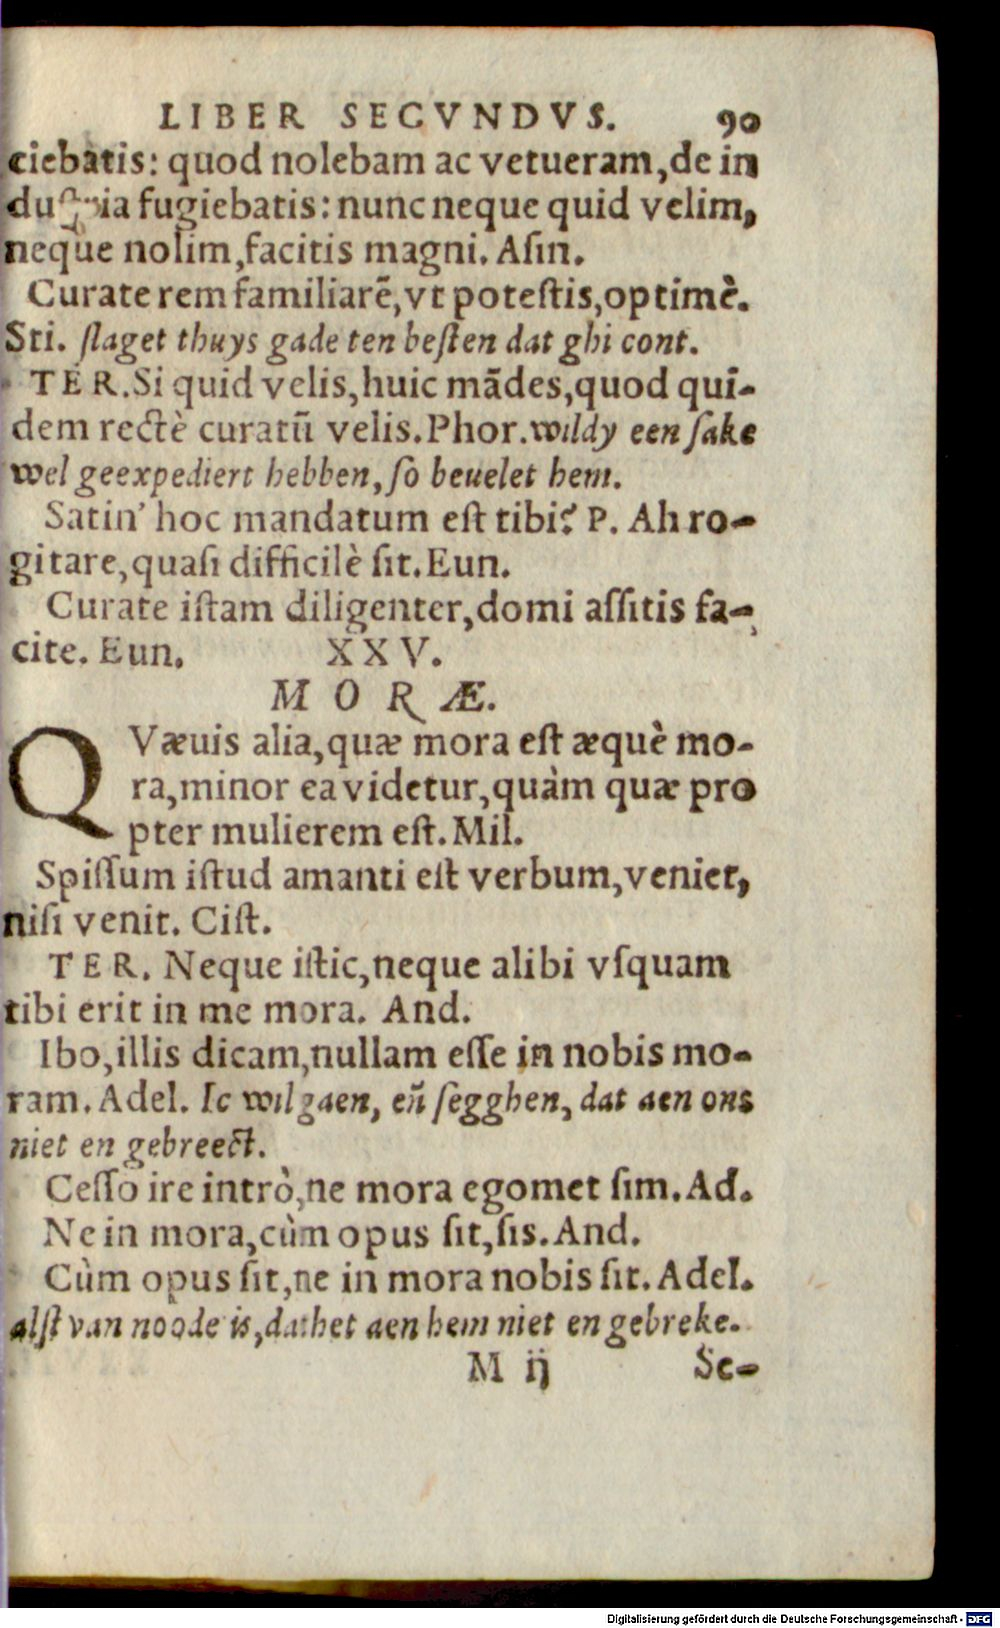 LIBER SECVNDVS. 90
ciebatis: quod nolebam ac vetueram, de in
duſtria fugiebatis: nunc neque quid velim,
neque nolim, facitis magni. Aſin.
Curate rem familiarẽ, vt poteſtis, optimè.
Sti. ſlaget thuys gade ten beſten dat ghi cont.
TER. Si quid velis, huic mãdes, quod quĩ-
dem rectè curatũ velis. Phor. wildy een ſake
wel geexpediert hebben, ſo beuelet hem.
Satin' hoc mandatum eſt tibi? P. Ah ro-
gitare, quaſi difficilè ſit. Eun.
Curate iſtam diligenter, domi aſſitis fa-
cite. Eun. XXV.
MORÆ.
QVæuis alia, quæ mora eſt æquè mo-
ra, minor ea videtur, quàm quæ pro
pter mulierem eſt. Mil.
Spiſſum iſtud amanti eſt verbum, veniet,
niſi venit. Ciſt.
TER. Neque iſtic, neque alibi vſquam
tibi erit in me mora. And.
Ibo, illis dicam, nullam eſſe in nobis mo-
ram. Adel. Ic wil gaen, eñ ſegghen, dat aen ons
niet en gebreect.
Ceſſo ire intrò, ne mora egomet ſim. Ad.
Ne in mora, cùm opus ſit, ſis. And.
Cùm opus ſit, ne in mora nobis ſit. Adel.
alſt van noode is, dat het aen hem niet en gebreke.
M ij Se-
Digitalisierung gefördert durch die Deutsche Forschungsgemeinschaft - DFG